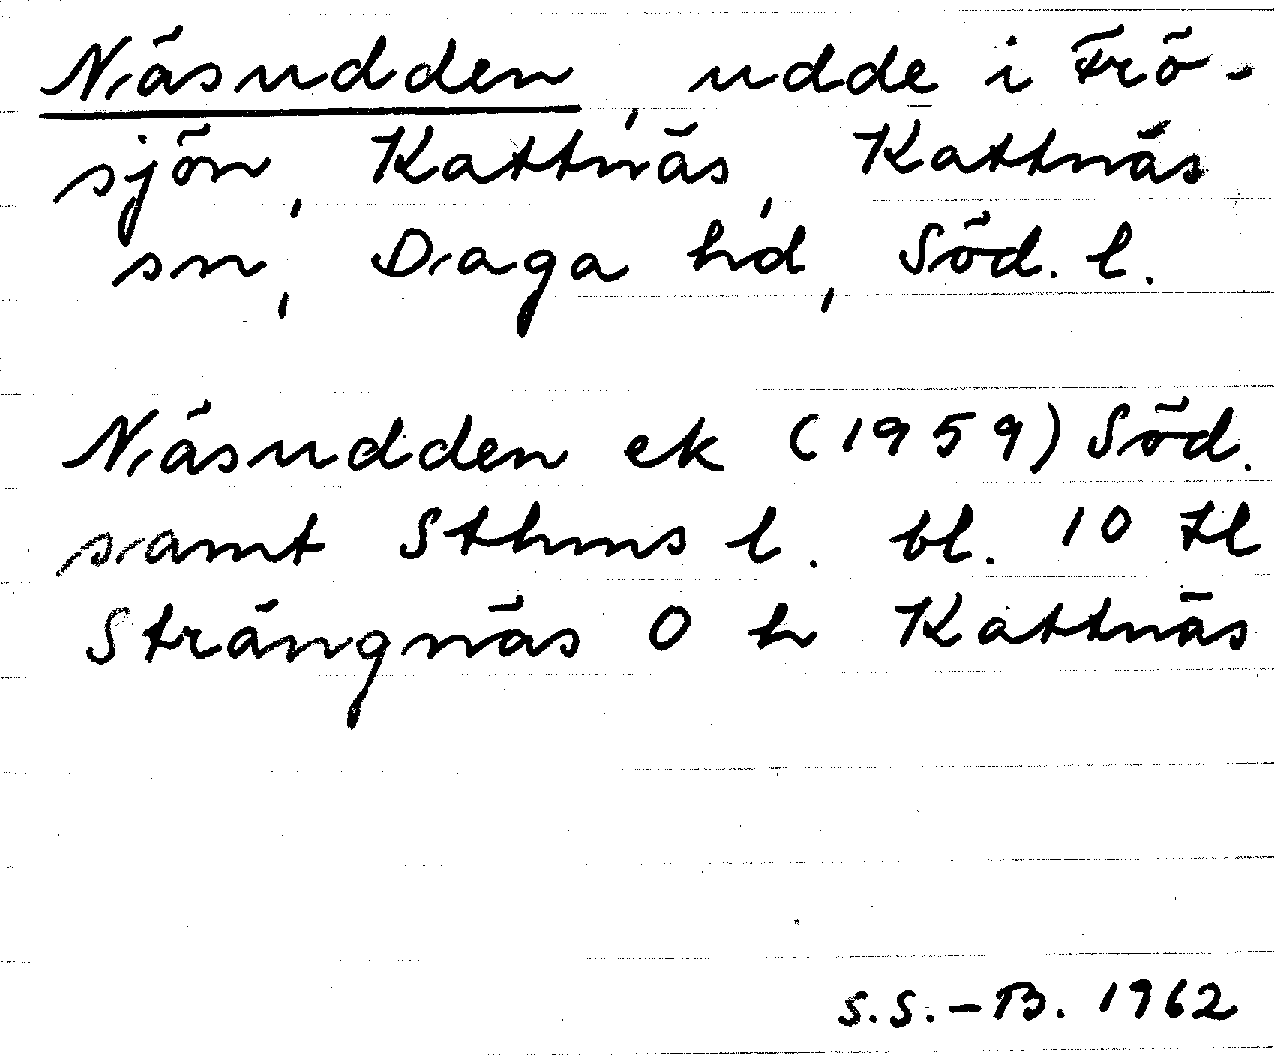 Näsudden, udde i Frö-
sjön, Kattnäs, Kattnäs
sn, Daga hd, Söd. l.
Näsudden ek (1959) Söd.
samt Sthms l. bl. 10 tl
Strängnäs O h Kattnäs
S.S.-B. 1962